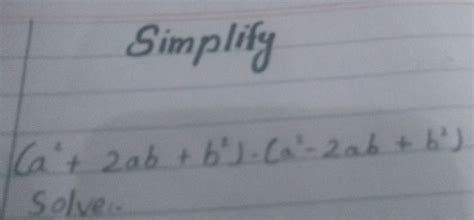 Simplify
(a² + 2ab + b²) - (a² - 2ab + b²)
Solve:-